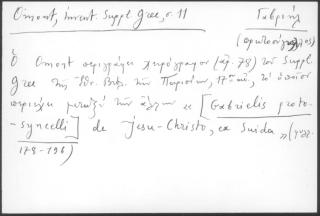 Omont, Invent. Suppl. Grec, σ. 11
Γαβριήλ
(πρωτοσύγκελλος)
Ὁ Omont περιγράφει χειρόγραφον (ἀρ. 78) τοῦ Suppl.
Grec τῆς Ἐθν. Βιβλ. τῶν Παρισίων, 17ου αἰ., τὸ ὁποῖον
περιέχει μεταξὺ τῶν ἄλλων « [Gabrielis proto-
-syncelli] de Jesu-Christo, ex Suida » (φύλλ.
178-196)